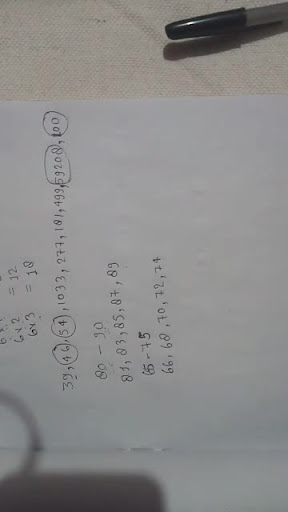 6x2 = 12
6x3 = 18
39, 46, 54, 1033, 277, 181, 499, 59208, 100
80 - 90
81, 83, 85, 87, 89
65 - 75
66, 68, 70, 72, 74